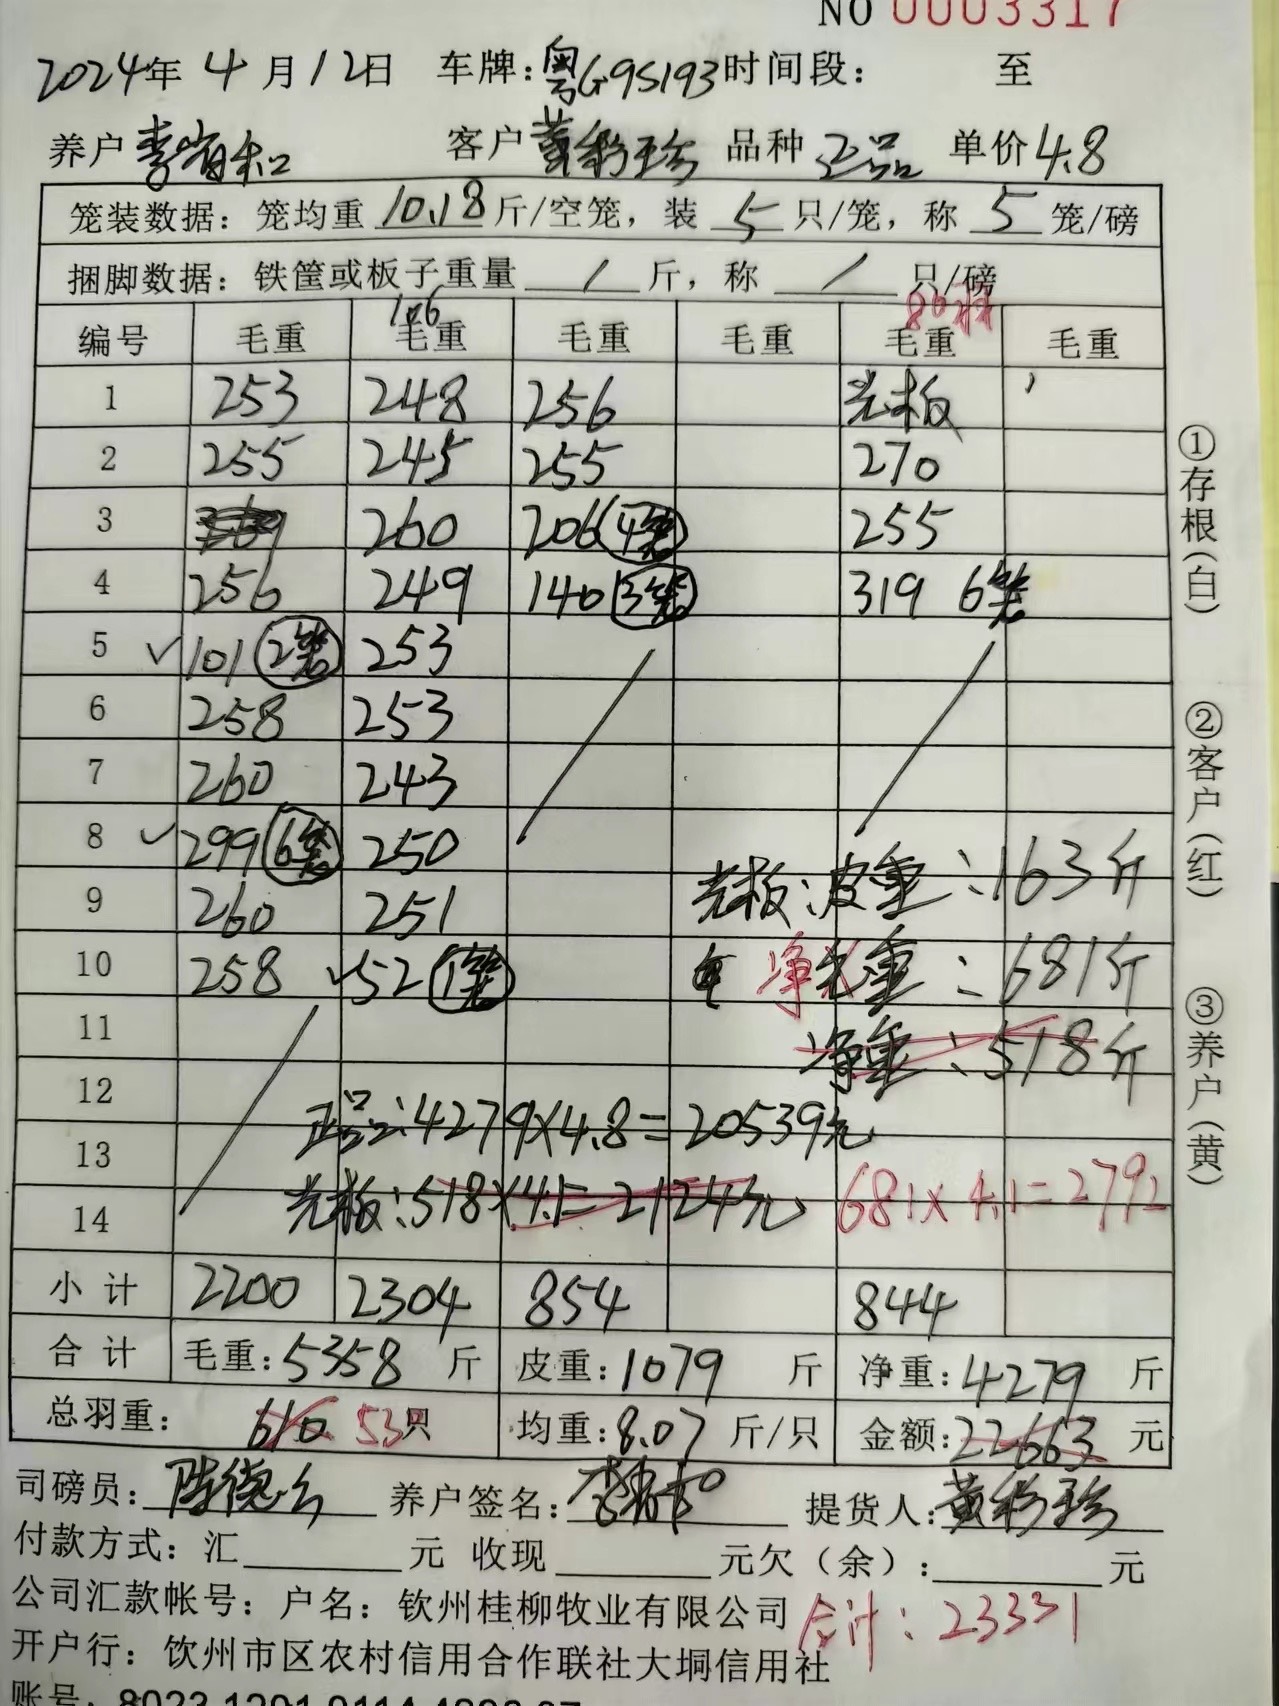 NO 0003317
2024年 4月12日 车牌:粤G95193 时间段: 至
养户 李肖和 客户 黄彩珍 品种 正品 单价 4.8
笼装数据:笼均重 10.18 斤/空笼,装 5 只/笼,称 5 笼/磅
捆脚数据:铁筐或板子重量 / 斤,称 / 只/磅
106 80
编号 毛重 毛重 毛重 毛重 毛重 毛重
1 253 248 256 光板
2 255 245 255 270
3 260 206 4笼 255
4 256 249 140 3笼 319 6笼
5 ✓101 2笼 253
6 258 253
7 260 243
8 ✓299 6笼 250
9 260 251
光板:皮重:163斤
10 258 ✓52 1笼
净重:681斤
11
净重:518斤
12
正品:4279×4.8=20539元
13
光板:518×4.1=2124元 681×4.1=2792
14
小计 2200 2304 854 844
合计 毛重:5358 斤 皮重:1079 斤 净重:4279 斤
总羽重: 610 530只 均重:8.07 斤/只 金额:22663 元
司磅员:陈德 养户签名:李肖和 提货人:黄彩珍
付款方式:汇 元 收现 元欠(余): 元
公司汇款帐号:户名:钦州桂柳牧业有限公司 合计:23331
开户行:饮州市区农村信用合作联社大垌信用社
账号:8023 1201 0114
①存根(白)
②客户(红)
③养户(黄)